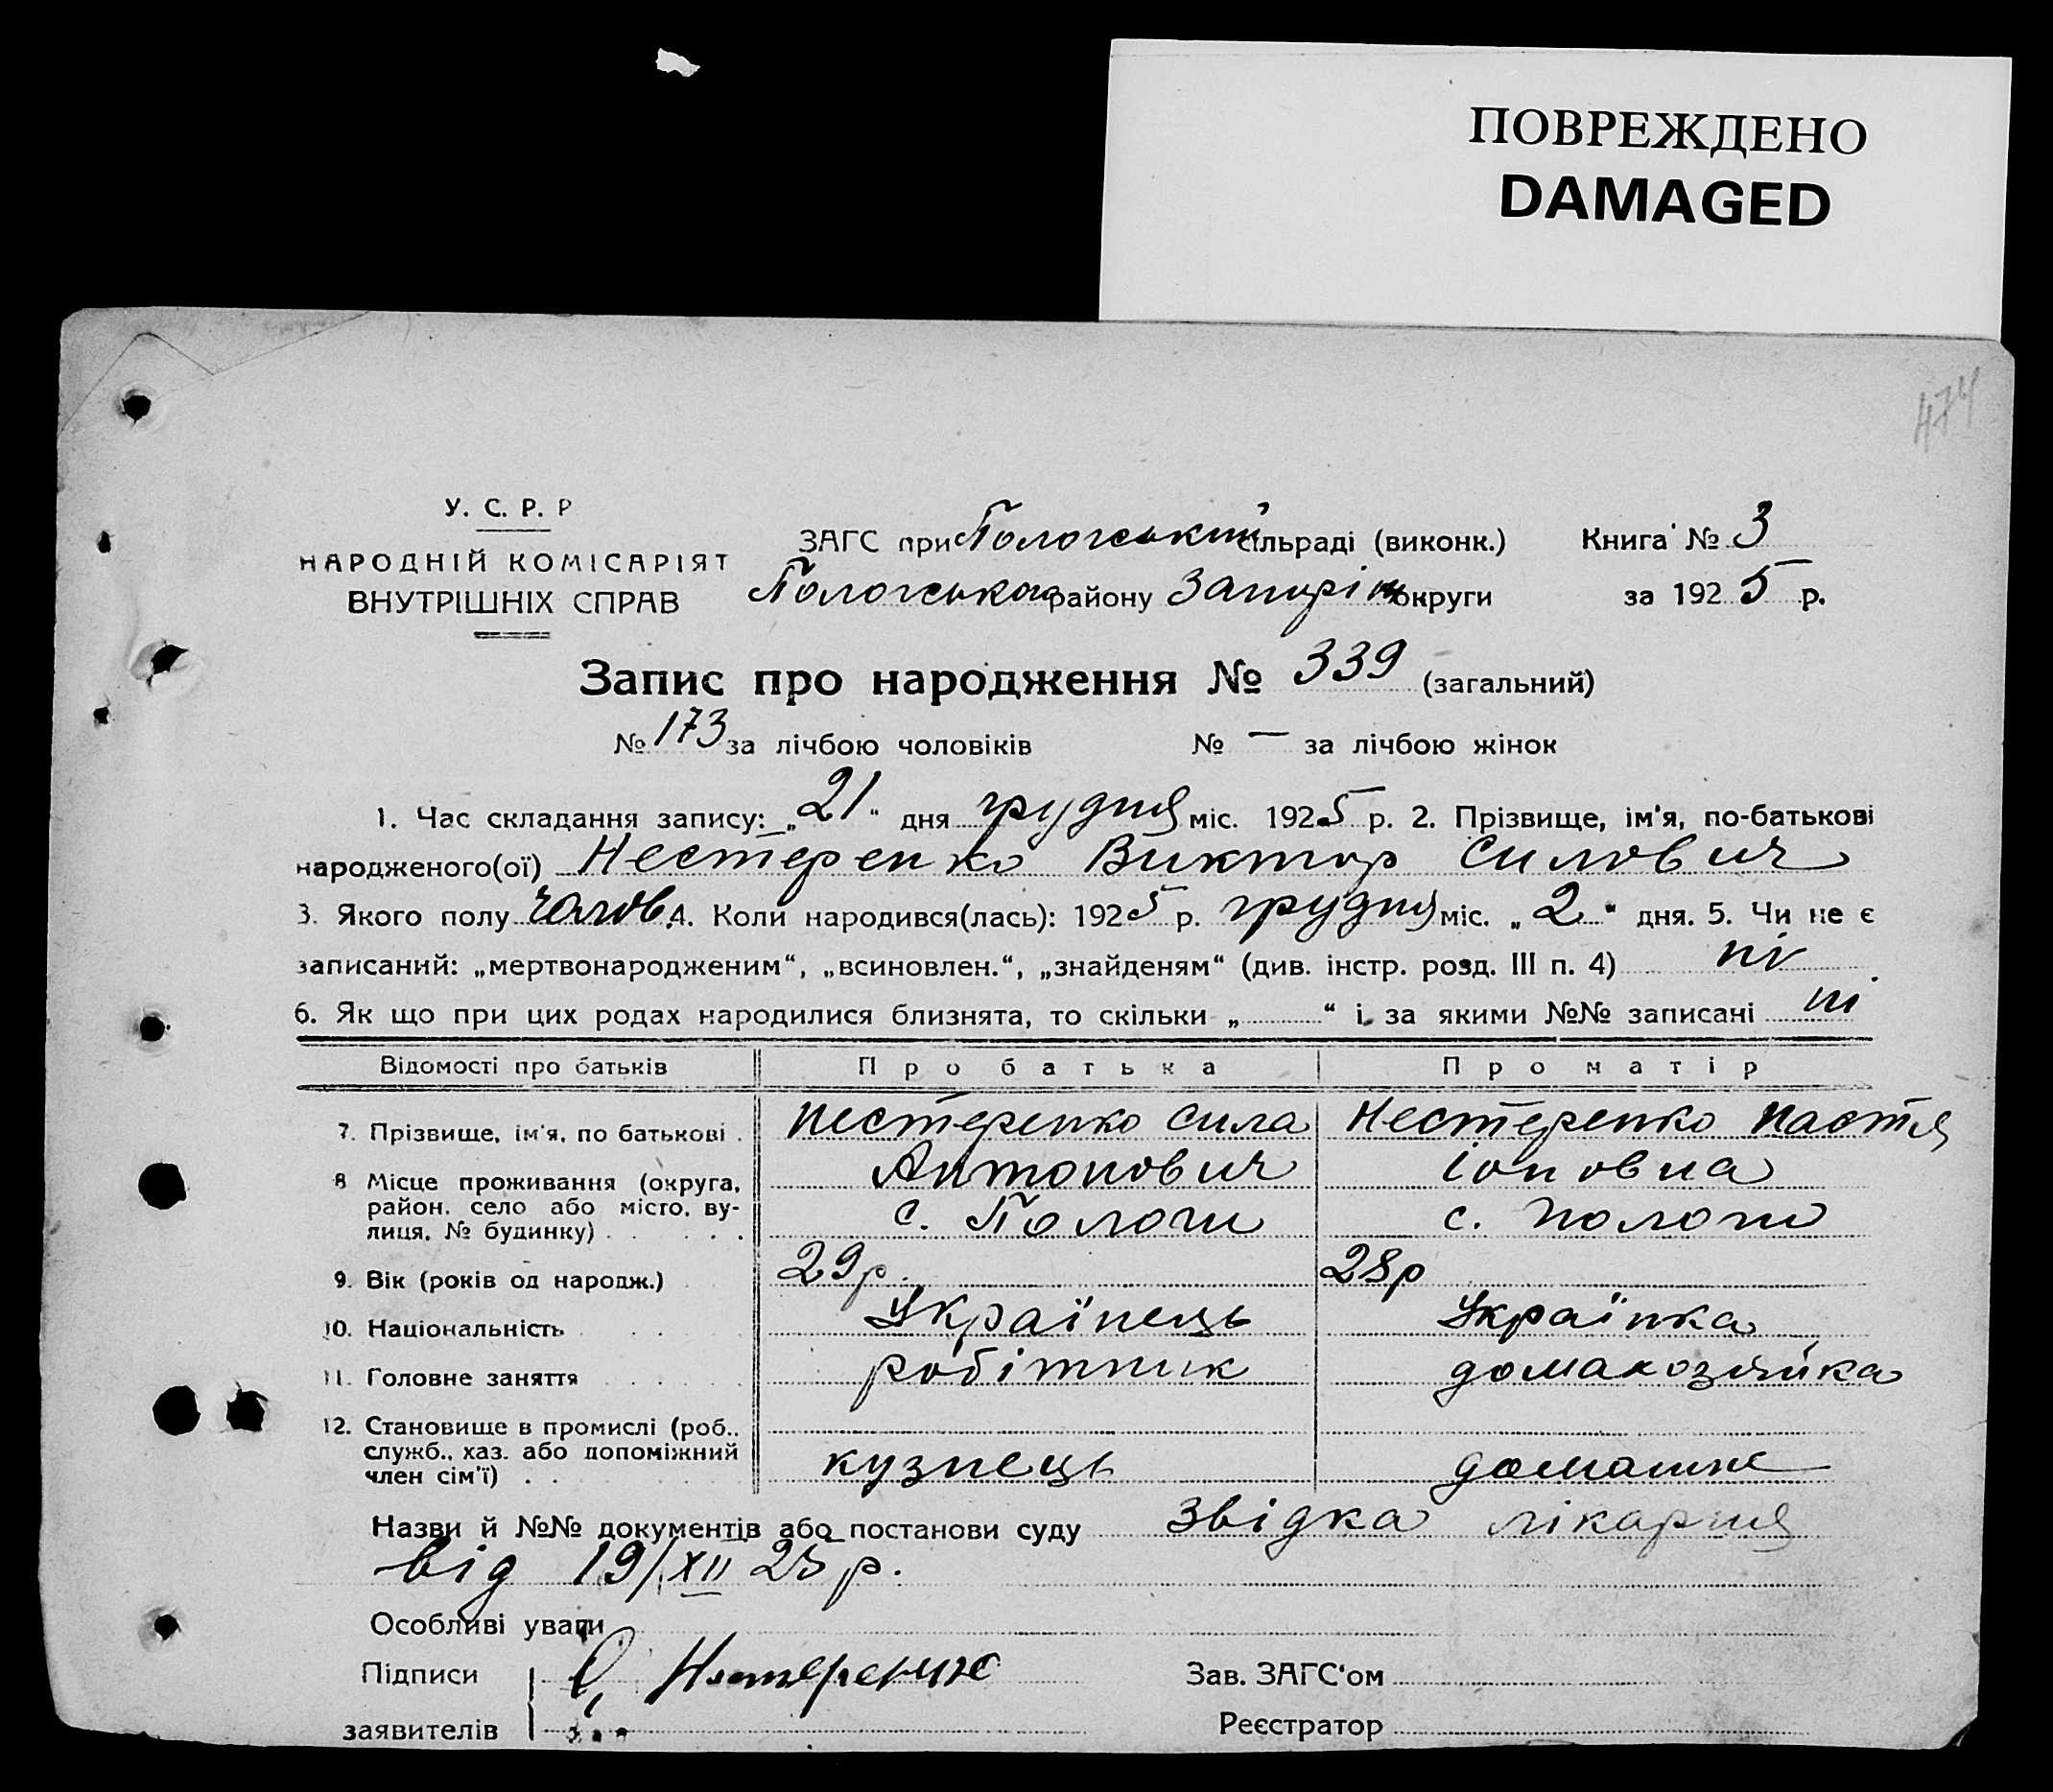 ПОВРЕЖДЕНО
DAMAGED
474
У. С. Р. Р
НАРОДНІЙ КОМІСАРІЯТ
ВНУТРІШНІХ СПРАВ
ЗАГС при Пологський сільраді (виконк.) Книга № 3
Пологського району Запоріж округи за 1925 р.
Запис про народження № 339 (загальний)
№ 173 за лічбою чоловіків № — за лічбою жінок
1. Час складання запису: „21“ дня грудня міс. 1925 р. 2. Прізвище, ім'я, по-батькові
народженого(ої) Нестеренко Виктор Силович
3. Якого полу чолов. 4. Коли народився(лась): 1925 р. грудня міс. „2“ дня. 5. Чи не є
записаний: „мертвонародженим“, „всиновлен.“, „знайденям“ (див. інстр. розд. III п. 4) ні
6. Як що при цих родах народилися близнята, то скільки „ “ і за якими №№ записані ні
Відомості про батьків Про батька Про матір
7. Прізвище, ім'я, по батькові . Нестеренко Сила Нестеренко Настя
Антонович Іоновна
8 Місце проживання (округа,
район, село або місто, ву-
лиця, № будинку) . . . . . с. Пологи с. Пологи
9. Вік (років од народж.) 29р. 28р
10. Національність . . . Українець Українка
11. Головне заняття . . . . робітник домахозяйка
12. Становище в промислі (роб.,
служб., хаз. або допоміжний
член сім'ї) . . кузнець домашне
Назви й №№ документів або постанови суду звідка лікарня
від 19/XII 25 р.
Особливі уваги
Підписи С. Нестеренко Зав. ЗАГС'ом
заявителів Реєстратор